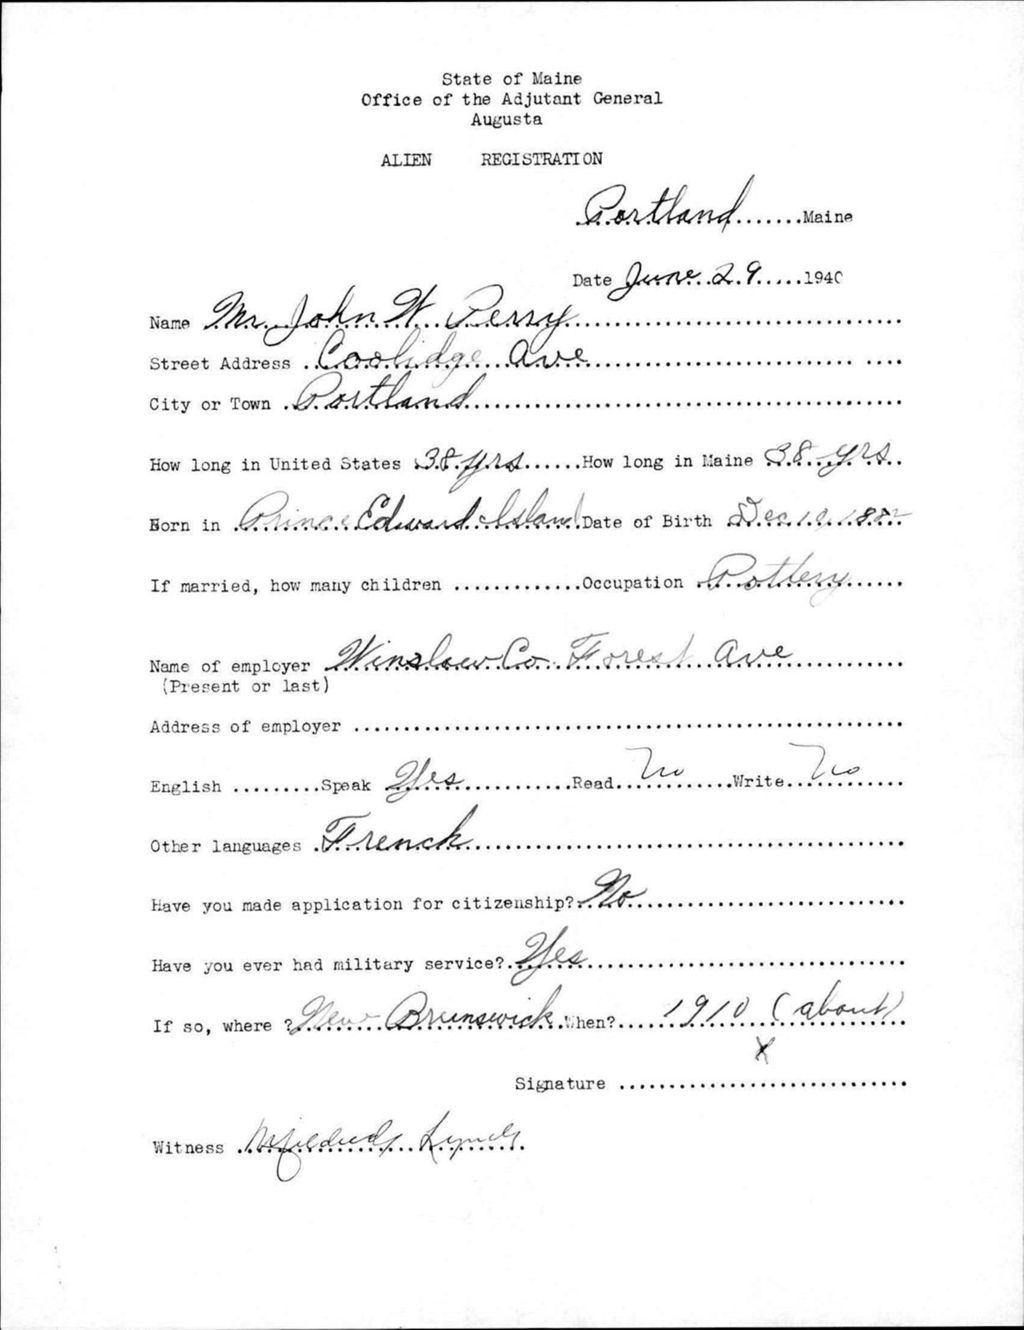 State of Maine
Office of the Adjutant General
Augusta
ALIEN REGISTRATION
Portland.......Maine
Date June 29.....1940
Name Mr. John W. Perry
Street Address Coolidge Ave
City or Town Portland
How long in United States 38 yrs......How long in Maine 38 yrs
Born in Prince Edward Island Date of Birth Dec 10 1882
If married, how many children .............Occupation Pottery
Name of employer Winslow Co. Forest Ave
(Present or last)
Address of employer
English .........Speak Yes Read No Write No
Other languages French
Have you made application for citizenship? No
Have you ever had military service? Yes
If so, where? New Brunswick When? 1910 (about)
X
Signature
Witness Mildred Lynch